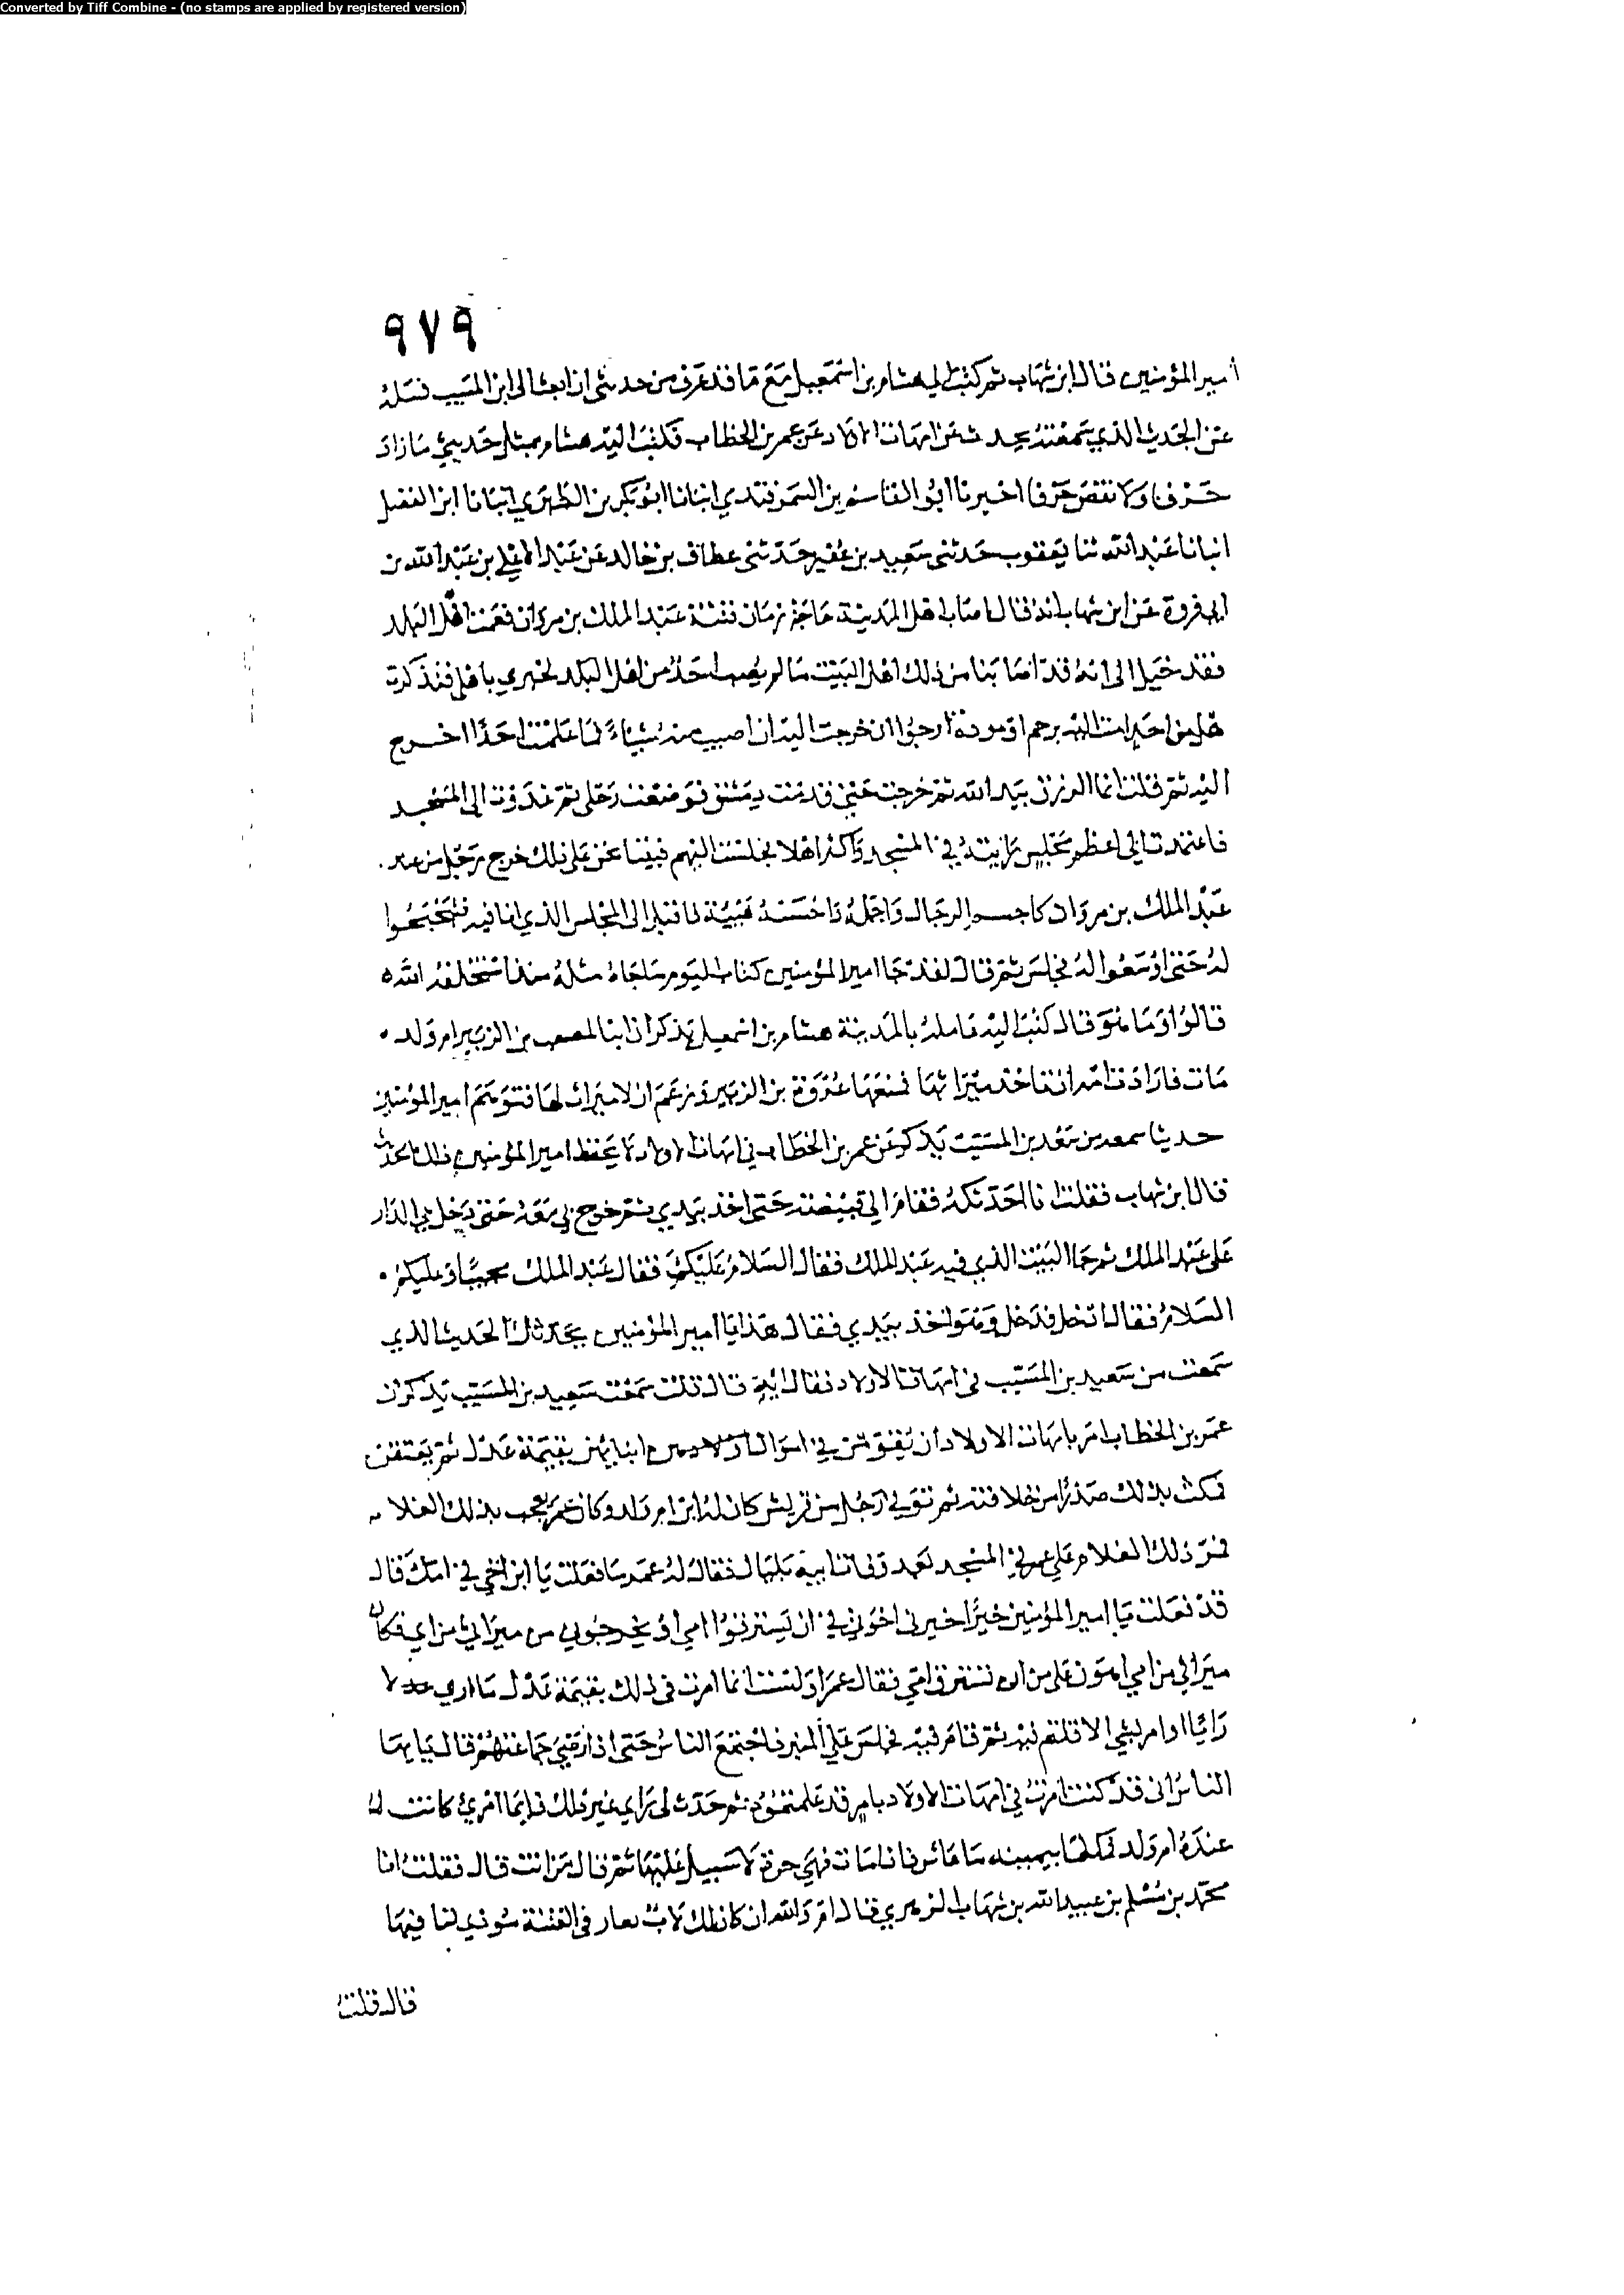 Converted by Tiff Combine - (no stamps are applied by registered version)
٩٧٩
أمير المؤمنين قال ابن شهاب ثم كتب الى هشام بن اسمعيل مع ما قد عرف من حديثي ان ابعث الى ابن المسيب فسله
عن الحديث الذي سمعته يحدث عن امهات الاولاد عن عمر بن الخطاب فكتب اليه هشام بمثل حديثي ما زاد
حرفا ولا نقص حرفا اخبرنا ابو القاسم بن السمرقندي انبانا ابو بكر بن الطبري انبانا ابن الفضل
انبانا عبد الله ثنا يعقوب حدثني سعيد بن عفير حدثني عطاف بن خالد عن عبد الاعلى بن عبد الله بن
ابي فروة عن ابن شهاب انه قال اصاب اهل المدينة حاجة زمان فتنة عبد الملك بن مروان فعمت اهل البلد
فقد خيل الى انه قد اصابنا من ذلك اهل البيت ما لم يصب احد من اهل البلد لخبري باهلي فتذكرت
هل من احد امت اليه برحم او مودة ارجوا ان خرجت اليه ان اصيب منه شياء فما علمت احدا اخرج
اليه ثم قلت انما الرزق بيد الله ثم خرجت حتى قدمت دمشق فوضعت رحلي ثم غدوت الى المسجد
فاعتمدت الى اعظم مجلس رايته في المسجد واكثر اهلا فجلست اليهم فبينا نحن على ذلك خرج رجل من عند
عبد الملك بن مروان كاجسم الرجال واجمله واحسنه هيئة فاقبل الى المجلس الذي انا فيه فتحثحثوا
له حتى اوسعوا له فجلس ثم قال لقد جا امير المؤمنين كتاب اليوم ما جاه مثله منذ استخلفه الله
قالوا وما هو قال كتب اليه عامله بالمدينة هشام بن اسمعيل يذكر ان ابنا لمصعب بن الزبير ام ولد
مات فارادت امه ان تاخذ ميراثها فمنعها عروة بن الزبير وزعم ان لا ميراث لها فتوهم امير المؤمنين
حديثا سمعه من سعيد بن المسيب يذكر عن عمر بن الخطاب في امهات الاولاد لا يحفظ امير المؤمنين ذلك الحديث
قال ابن شهاب فقلت انا احدثكه فقام الي قبيصة حتى اخذ بيدي ثم خرج بي معه حتى دخل بي الدار
على عبد الملك ثم جا البيت الذي فيه عبد الملك فقال السلام عليكم فقال عبد الملك مجيبا وعليكم
السلام فقال اندخل فدخل وهو اخذ بيدي فقال هذا يا امير المؤمنين يحدثك الحديث الذي
سمعت من سعيد بن المسيب في امهات الاولاد فقال ايه قال قلت سمعت سعيد بن المسيب يذكر ان
عمر بن الخطاب امر بامهات الاولاد ان يقومن في اموال ابنايهن بقيمة عدل ثم يعتقن
فمكث بذلك صدرا من خلافته ثم توفي رجل من قريش كان له ابن ام ولد وكان عمر يعجب بذلك الغلام
فمر ذلك الغلام على عمر في المسجد بعد وفاة ابيه بليال فقال له عمر ما فعلت يا ابن اخي في امك قال
قد فعلت يا امير المؤمنين خيرا خيرني اخوتي في ان يسترقوا امي او يخرجوني من ميراثي من ابي فكان
ميراثي من ابي اهون علي من ان تسترق امي فقال عمر اولست انما امرت في ذلك بقيمة عدل ما ارى لا
رايا او امر بشي الا قلتم فيه ثم قام فيه فجلس على المنبر فاجتمع الناس حتى اذا رضي جماعتهم قال يا ايها
الناس اني قد كنت امرت في امهات الاولاد بامر قد علمتموه ثم حدث لي راي غير ذلك فايما امرئ كانت له
عنده ام ولد فملكها بيمينه ما عاش فاذا مات فهي حرة لا سبيل عليها ثم قال من انت قال فقلت انا
محمد بن مسلم بن عبيد الله بن شهاب الزهري قال ام والله ان كان لك لاب نعار في الفتنة موذي لنا فيها
قال قلت